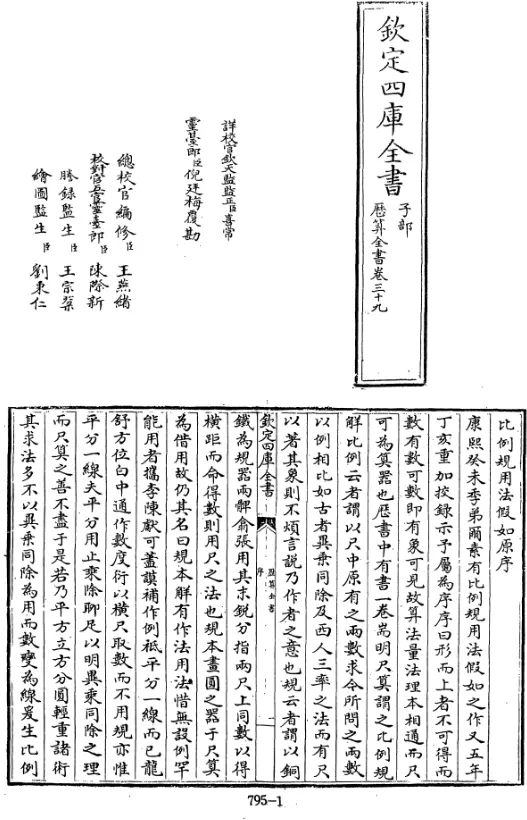 欽定四庫全書
子部
歷算全書卷三十九
詳校官欽天監監正臣喜常
靈臺郎臣倪廷梅覆勘
總校官編修臣王燕緒
校對官五官靈臺郎臣陳際新
謄錄監生臣王宗棻
繪圖監生臣劉秉仁
比例規用法假如原序
康熙癸未季弟爾素有比例規用法假如之作又五年
丁亥重加校錄示予屬為序序曰形而上者不可得而
數有數可數即有象可見故算法量法理本相通而尺
可為算器也歷書中有書一卷耑明尺算謂之比例規
解比例云者謂以尺中原有之兩數求今所問之兩數
以例相比如古者異乗同除及西人三率之法而有尺
以著其象則不煩言說乃作者之意也規云者謂以銅
欽定四庫全書
歷算全書
序
一
鐵為規器兩髀翕張用其末銳分指兩尺上同數以得
橫距而命得數則用尺之法也規本畫圓之器于尺算
為借用故仍其名曰規本解有作法用法惜無設例罕
能用者攜李陳獻可藎謨補作例秪平分一線而已龍
舒方位白中通作數度衍以橫尺取數而不用規亦惟
平分一線夫平分用止乗除聊足以明異乗同除之理
而尺算之善不盡于是若乃平方立方分圓輕重諸術
其求法多不以異乗同除為用而數變為線爰生比例
795-1